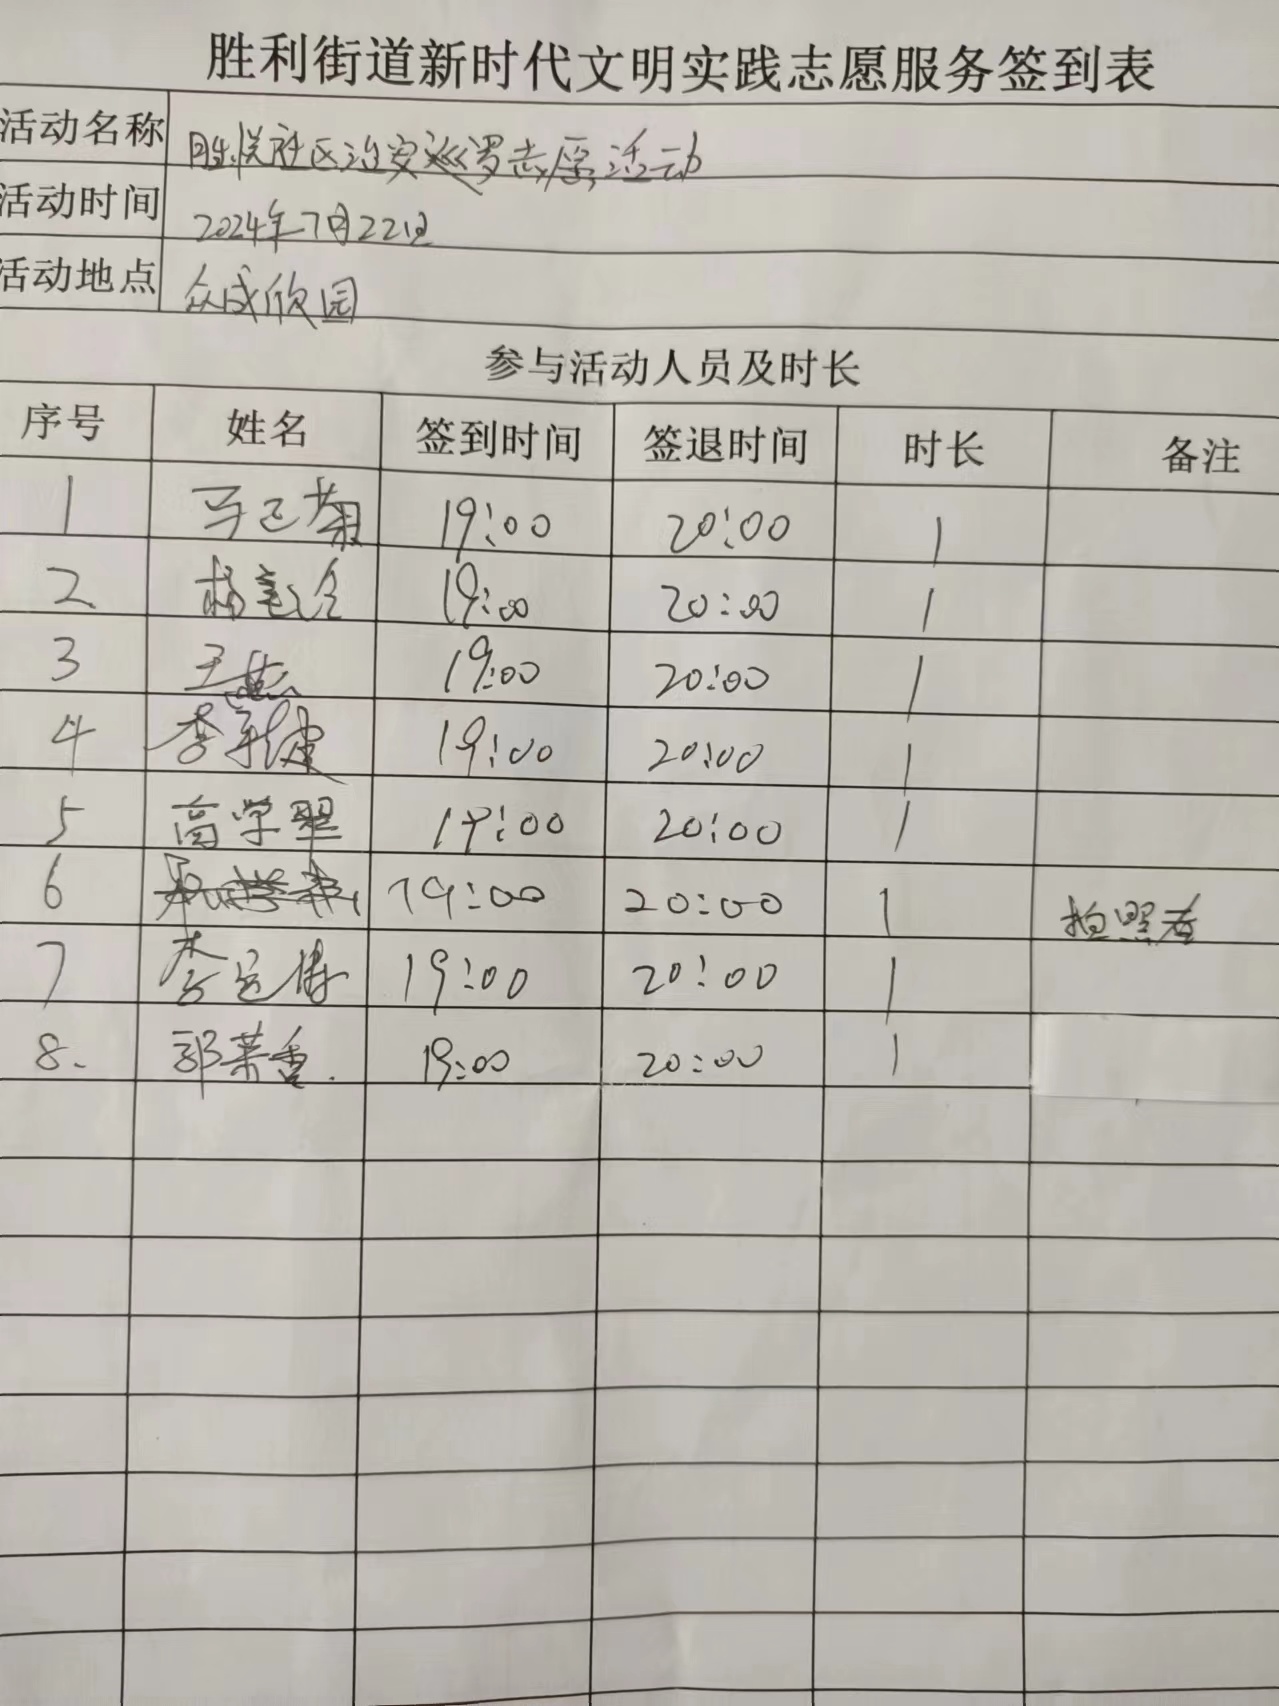 胜利街道新时代文明实践志愿服务签到表
活动名称 胜悦社区治安巡罗志愿活动
活动时间 2024年7月22日
活动地点 众成欣园
参与活动人员及时长
序号 姓名 签到时间 签退时间 时长 备注
1 19:00 20:00 1
2 19:00 20:00 1
3 王燕 19:00 20:00 1
4 李 19:00 20:00 1
5 高学 19:00 20:00 1
6 19:00 20:00 1 拍照者
7 李 19:00 20:00 1
8. 郭荣香. 19:00 20:00 1